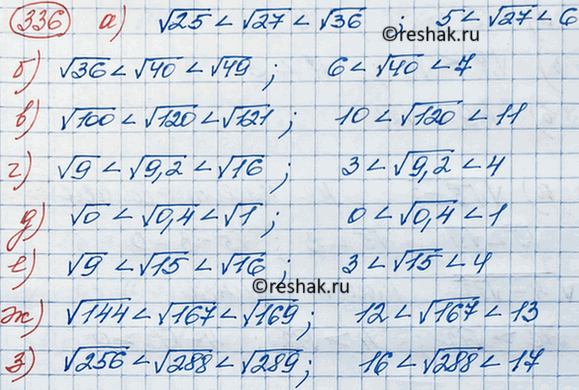 336 а) √25 < √27 < √36 ; 5 < √27 < 6
б) √36 < √40 < √49 ; 6 < √40 < 7
в) √100 < √120 < √121 ; 10 < √120 < 11
г) √9 < √9,2 < √16 ; 3 < √9,2 < 4
д) √0 < √0,4 < √1 ; 0 < √0,4 < 1
е) √9 < √15 < √16 ; 3 < √15 < 4
ж) √144 < √167 < √169 ; 12 < √167 < 13
з) √256 < √288 < √289 ; 16 < √288 < 17
©reshak.ru